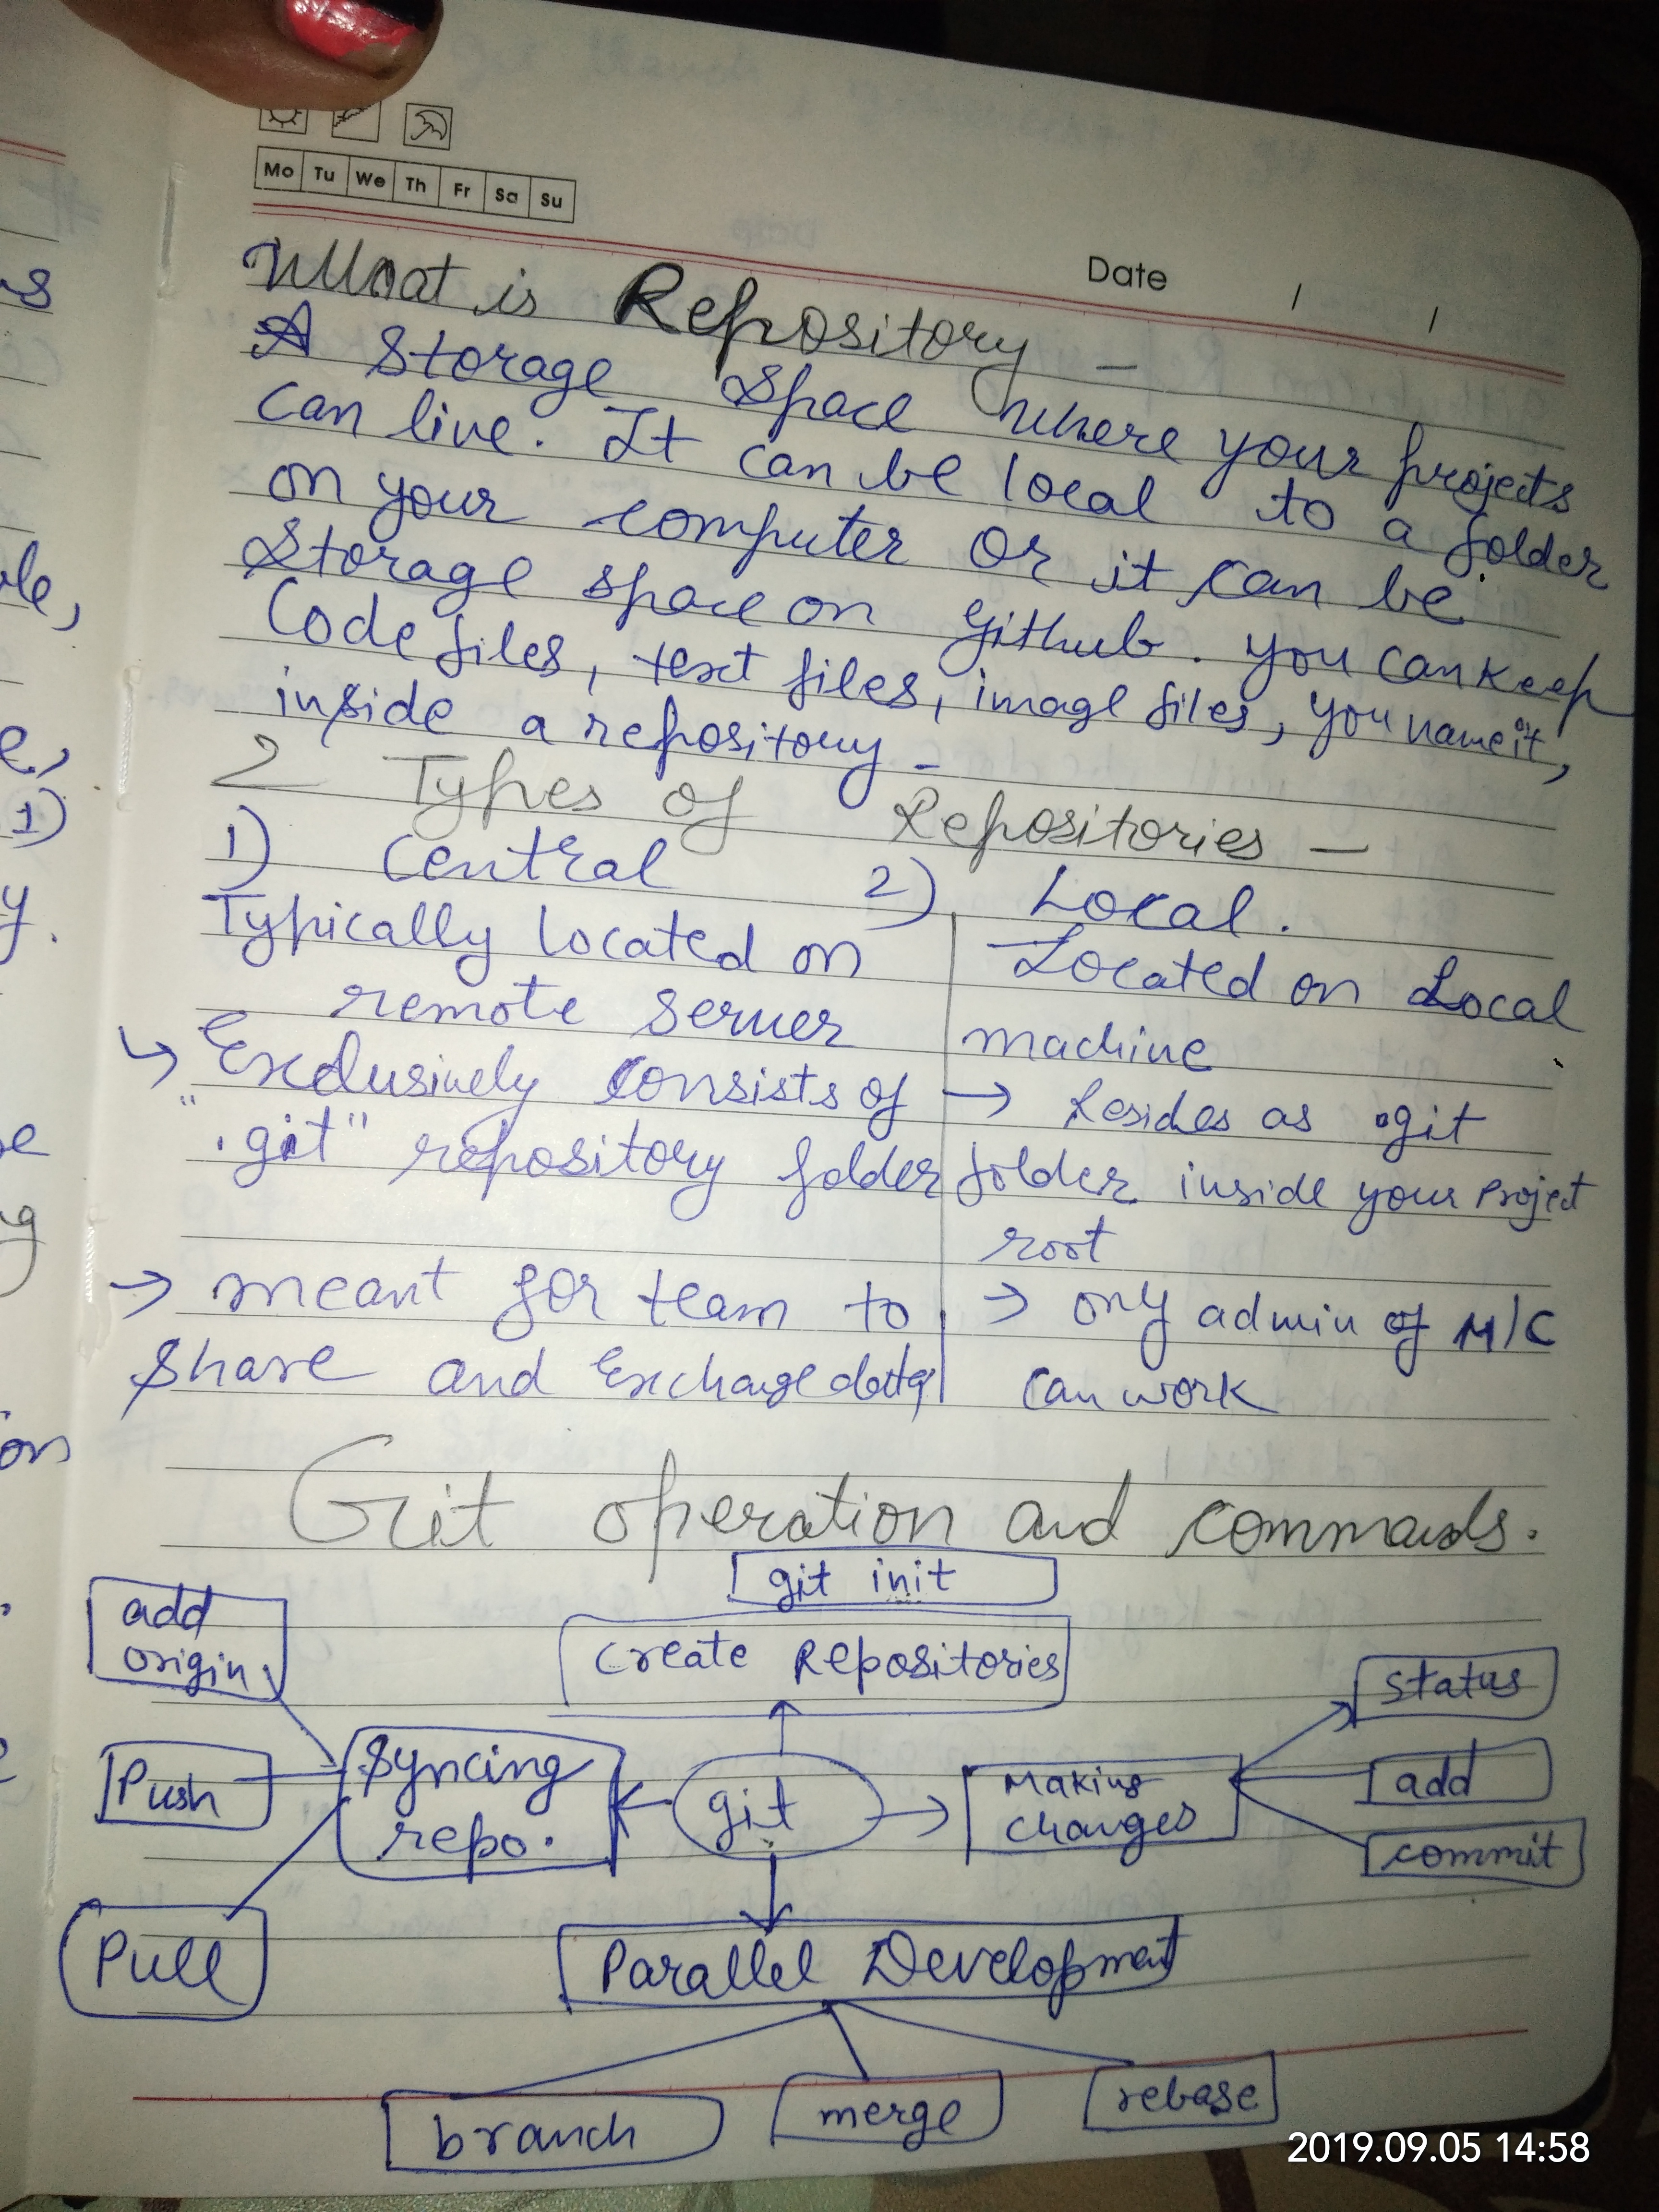 Mo Tu We Th Fr Sa Su
Date / /
What is Repository -
A Storage Space where your projects
can live. It can be local to a folder
on your computer or it can be
Storage space on github. you can keep
Code files, text files, image files, you name it,
inside a repository -
2 Types of Repositories -
1) Central
Typically located on
remote server
↳ Exclusively consists of
".git" repository folder
→ meant for team to
share and Exchange data
2) Local.
Located on Local
machine
→ Resides as .git
folder inside your Project
root
→ only admin of M/C
can work
Git operation and commands.
git init
Create Repositories
add
origin
Push
Pull
Syncing
repo.
git
Making
changes
status
add
commit
Parallel Development
branch
merge
rebase
s
le,
e,
1)
y.
e
g
on
2019.09.05 14:58